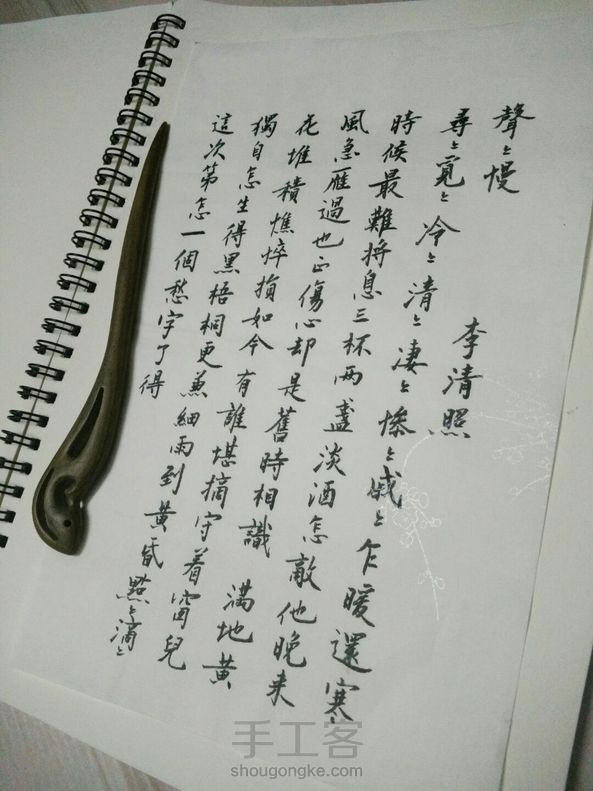 聲〻慢
李清照
尋〻覓〻冷〻清〻凄〻慘〻戚〻乍暖還寒
時候最難將息三杯两盞淡酒怎敵他晚来
風急雁過也正傷心却是舊時相識 滿地黄
花堆積憔悴損如今有誰堪摘守着窗兒
獨自怎生得黑梧桐更兼細雨到黄昏點〻滴〻
這次第怎一個愁字了得
手工客
shougongke.com